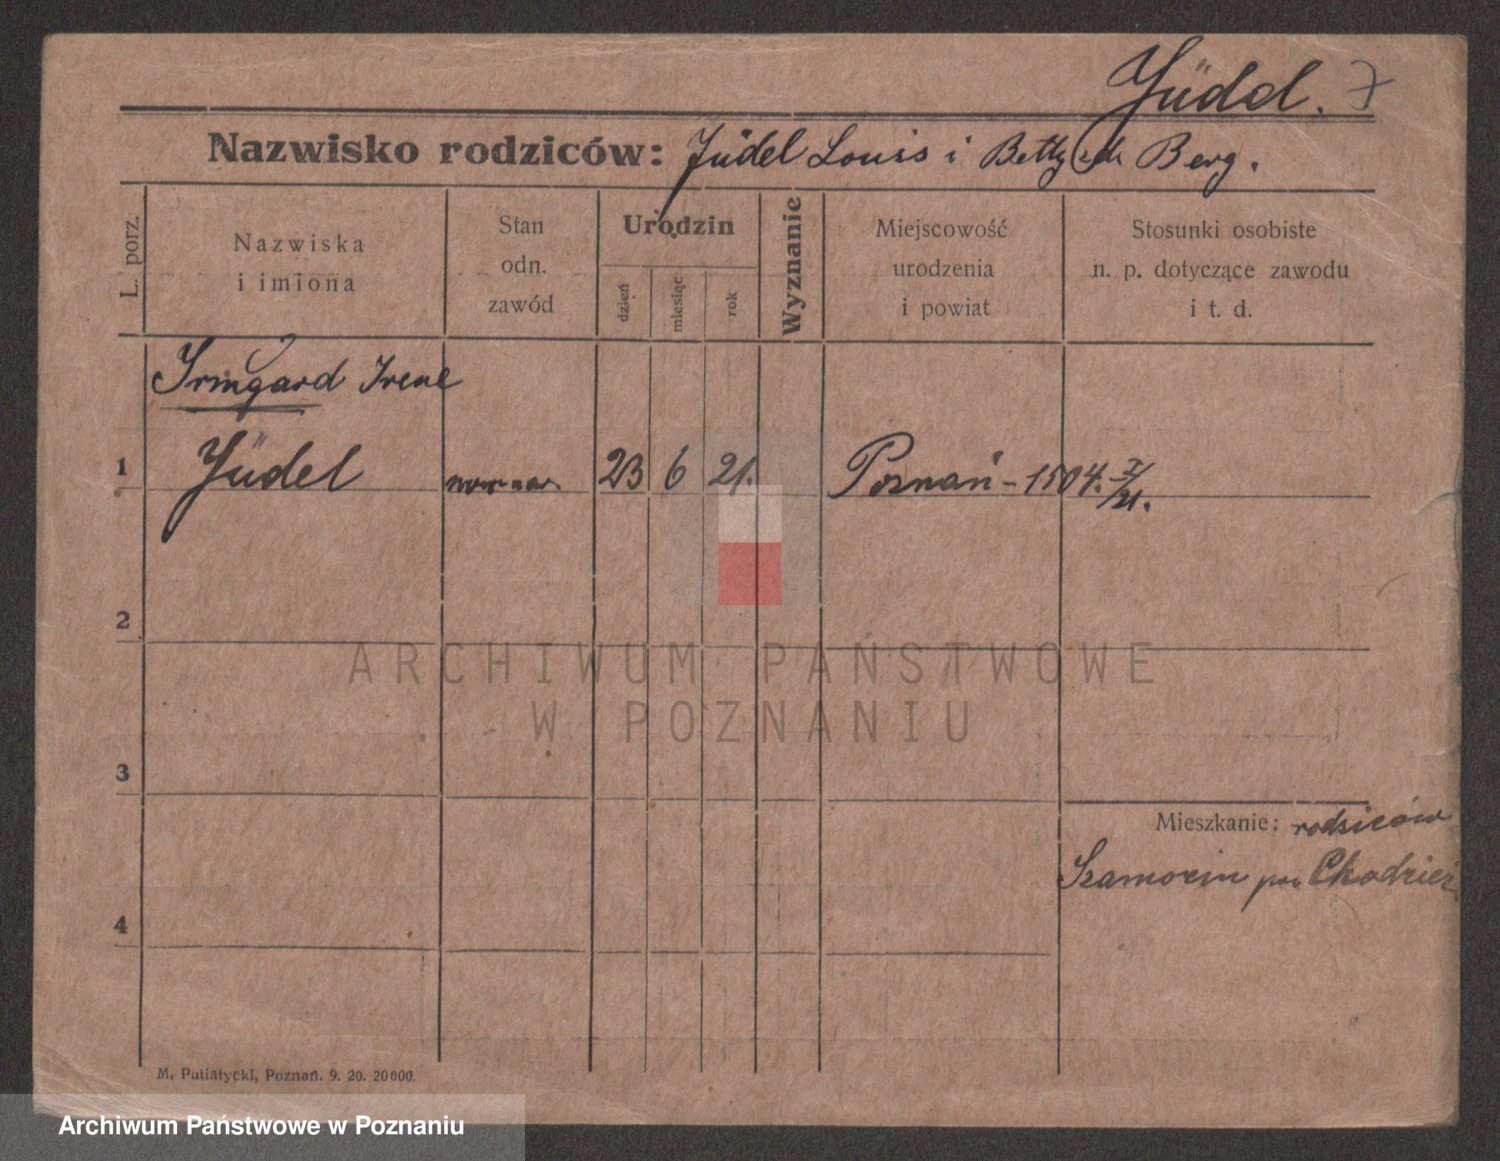 Jüdel.
Nazwisko rodziców: Jüdel Louis i Betty zd. Berg.
L. porz.
Nazwiska
i imiona
Stan
odn.
zawód
Urodzin
dzień
miesiąc
rok
Wyznanie
Miejscowość
urodzenia
i powiat
Stosunki osobiste
n. p. dotyczące zawodu
i t. d.
Irmgard Irene
1 Jüdel nowonar. 23 6 21. Poznań - 1504. I/21.
2
ARCHIWUM PAŃSTWOWE
W POZNANIU
3
Mieszkanie: rodziców
Szamocin pow. Chodzież
4
M. Putiatycki, Poznań. 9. 20. 20000.
Archiwum Państwowe w Poznaniu